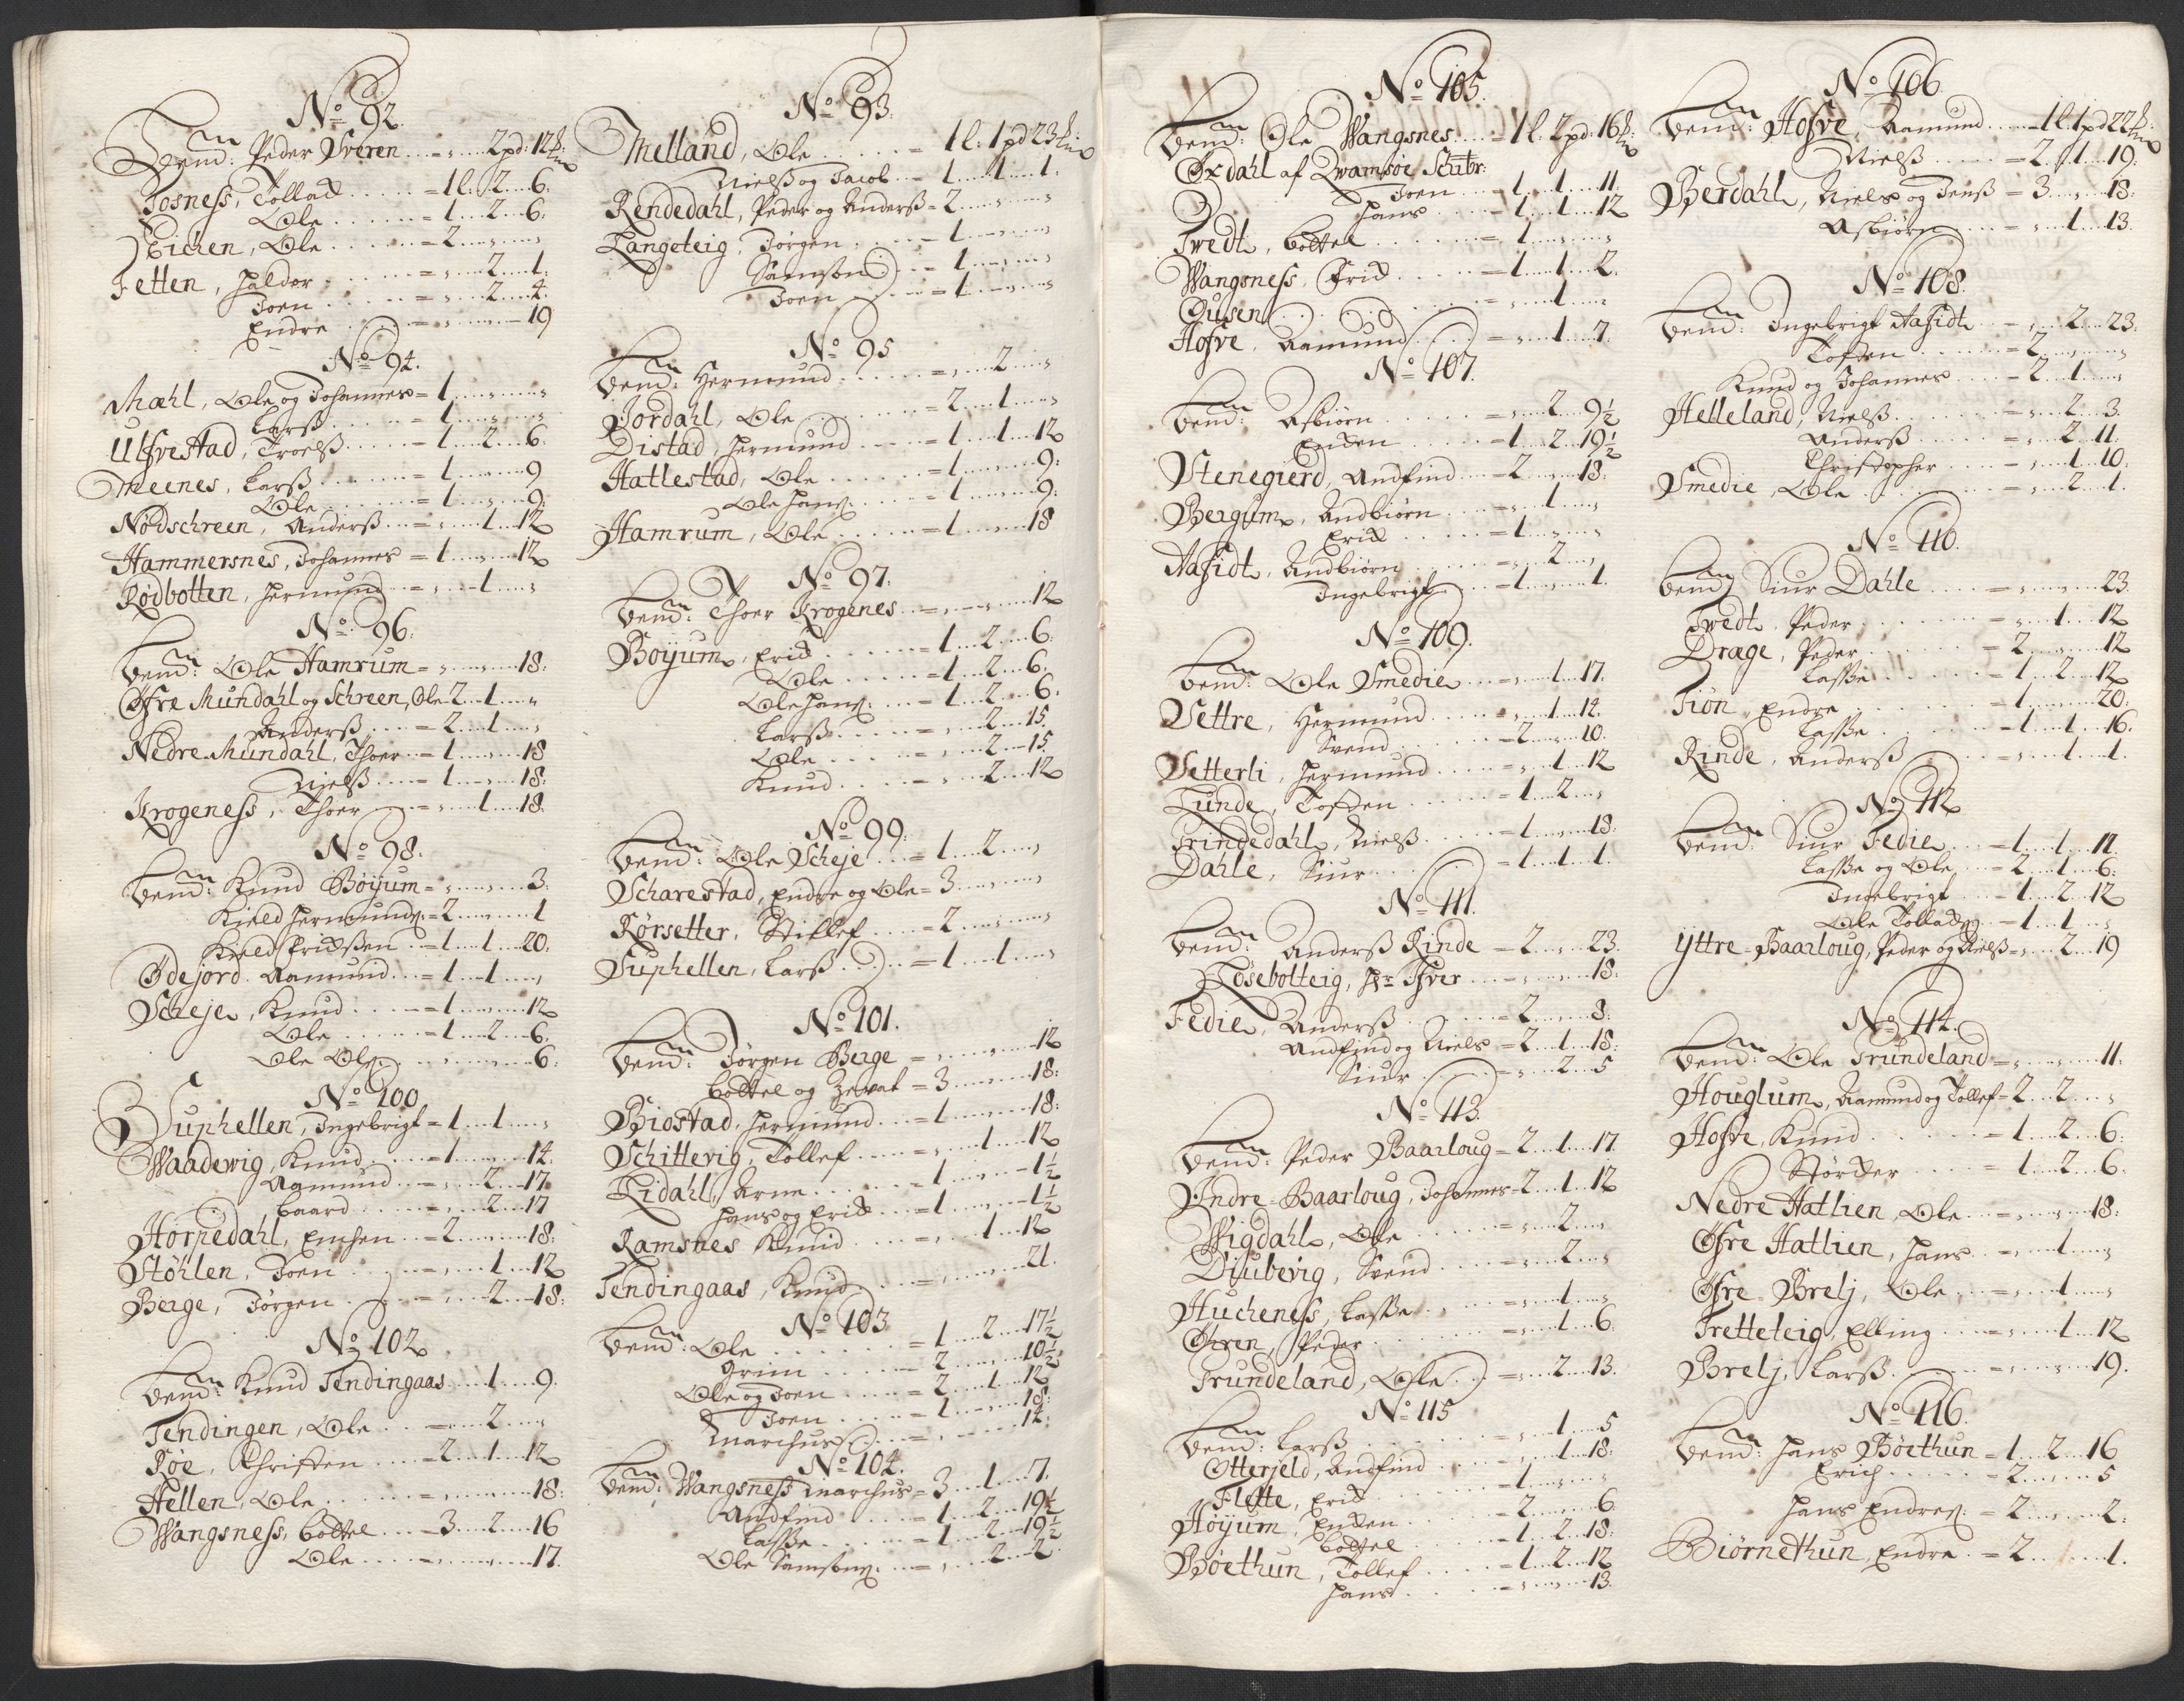 No 92.
Bemte: Peder Sveren = „ 2 pd: 12 lb:
Tosness, Tollack = 1 l: 2 6.
Ole = 1 2 6.
Eichen, Ole = 2 „ „
Fetten, Haldor = „ 2 1.
Joen = „ 2 4.
Endre = „ „ 19
No 94.
Mæhl, Ole og Johannes = 1 „ „
Larß = 1 „ „
Ulfvestad, Troelß = 1 2 6.
Meenes, Larß = 1 „ 9
Ole = 1 „ 9.
Nødschreen, Anderß = „ 1 12
Hammersnes, Johannes = 1 „ 12
Rødbotten, Hermund = „ 1 „
No 96.
Bemte: Ole Hamrum = „ „ 18.
Øfre Mundahl og Schreen, Ole 2 1 „
Anderß = 2 1 „
Nedre Mundahl, Thoer = 1 „ 18
Nielß = 1 „ 18.
Krogeness, Thoer = „ 1 18.
No 98.
Bemte: Knud Bøyum = „ „ 3.
Kield Hermunds: = 2 „ 1
Kield Erickßen = 1 1 20.
Ødejord. Aamund = 1 1 „
Scheje, Knud = 1 „ 12
Ole = 1 2 6.
Ole Ols: „ „ 6.
No 100
Suphellen, Ingebrigt = 1 1 „
Waadewig, Knud = 1 „ 14.
Aamund = „ 2 17
Baard = „ 2 17
Horpedahl, Emchen = 2 „ 18.
Støhlen, Joen = „ 1 12
Berge, Jørgen = „ 2 18.
No 102
Bemte: Knud Tendingaas 1 9.
Tendingen, Ole = „ 2 „
Røe, Christen = 2 1 12
Hellen, Ole = „ „ 18.
Wangsness, Bottel = 3 2 16
Ole = „ „ 17.
No 93.
Melland, Ole = 1 l: 1 pd 23 lb:
Nielß og Jacob = 1 1 1.
Rendedahl, Peder og Anderß = 2 „ „
Langeteig, Jørgen = 1 „ „
Samson = 1 „ „
Joen = 1 „ „
No 95
Bemte: Hermund = „ 2 „
Jordahl, Ole = 2 1 „
Distad, Hermund = 1 1 12
Hatlestad, Ole = 1 „ 9.
Ole Hans: = 1 „ 9.
Hamrum, Ole = 1 „ 18
No 97.
Bemte: Thoer Krogenes = „ „ 12
Boyum, Erick = 1 2 6.
Ole = 1 2 6.
Ole Hans: = 1 2 6.
Larß = „ 2 15.
Ole = „ 2 15
Knud = „ 2 12
No 99.
Bemte: Ole Scheje = 1 2 „
Scharestad, Endre og Ole = 3 „ „
Rørsetter, Stillef = 2 „ „
Suphellen, Larß = 1 1 „
No 101.
Bemte: Jørgen Berge = „ „ 12
Bottel og = 3 „ 18.
Biostad, Hermund = 1 „ 18.
Schittevig, Tollef = „ 1 12
Lidahl, Arne = 1 „ 1½
Hans og Erick = 1 „ 1½
Ramsnes Knud = „ 1 12
Tendingaas, Knud = „ „ 21.
No 103
Bemte: Ole = 1 2 17½
Grim = 2 „ 10½
Ole og Joen = 2 1 12
Joen = 1 „ 18.
Marchus = „ „ 14.
No 104.
Bemte: Wangsness Marchus = 3 1 7.
Andfind = 1 2 19½
Laße = 1 2 19½
Ole Samsons: = „ 2 2
No 105.
Bemte: Ole Wangsnes = 1 l. 2 pd: 16 lb:
Oxdahl af Qwamsøe Schibr:
Joen = 1 1 11.
Hans = 1 1 12
Twedt, Bottel = 1 „ „
Wangsness, Erick = 1 1 2.
Dusen = „ 1 „
Hofve, Aamund = „ 1 7.
No 107.
Bemte: Asbiørn = „ 2 9½
Endren = 1 2 19½
Stenegierd, Andfind = 2 „ 18.
Bergum, Andbiørn = „ 1 „
Erick = 1 „ „
Aafidt, Andbiørn = „ 2 „
Ingebrigt = 1 „ 1.
No 109.
Bemte: Ole Smedie = „ 1 17.
Settre, Hermund = „ 1 14.
Svend = 2 „ 10.
Setterli, Hermund = „ 1 12
Lunde, Tosten = 1 2 „
Grindedahl, Nielß = 1 „ 18.
Dahle, Siur = 1 1 1.
No 111.
Bemte: Anderß Rinde = 2 „ 23.
Løsebolteig, Hr Ifver = „ „ 18.
Fedie, Anderß = 2 „ 8.
Andfind og Niels = 2 1 18.
Siur = „ 2 5
No 113.
Bemte: Peder Baarloug = 2 1 17.
Indre-Baarloug, Johannes = 2 1 12
Wigdahl, Ole = „ 2 „
Diubevig, Svend = „ 2 „
Hucheness, Laße = „ 1 „
Øhren, Peder = „ 1 6.
Trundeland, Ole = „ 2 13.
No 115
Bemte: Larß = „ 1 5
Otterjeld, Andfind = „ 1 18.
Flette, Erick = 1 „ „
Høyum, Endren = 2 „ 6
Bottel = 1 2 18.
Bøethun, Tollef = 1 2 12
Hans = „ „ 13.
No 106
Bemte: Hofve, Aamund = 1 l: 1 pd 22 lb:
Nielß = 2 1 19.
Berdahl, Niels og Jenß = 3 „ 18.
Asbiørn = „ 1 13.
No 108
Bemte: Ingebrigt Aafidt = „ 2 23.
Tosten = 2 „ „
Knud og Johannes = 2 1 „
Helleland, Nielß = „ 2 3.
Anderß = „ 2 11.
Christopher = „ 1 10.
Smedie, Ole = „ 2 1.
No 110.
Bemte: Siur Dahle = „ „ 23.
Twedt, Peder = „ 1 12
Drage, Peder = 2 „ 12
Laße = 1 2 12
Tiøn, Endre = 1 „ 20.
Laße = 1 1 16.
Rinde, Anderß = „ 1 1.
No 112
Bemte: Siur Fedie = 1 1 11.
Laße og Ole = 2 1 6.
Ingebrigt = 1 2 12
Ole Tollacks: = 1 1 „
Yttre-Baarloug, Peder og Nielß = „ 2 19
No 114.
Bemte: Ole Trundeland = „ „ 11.
Houglum, Aamund og Tollef = 2 2 „
Hofve, Knud = 1 2 6.
Størcker = 1 2 6.
Nedre Hatlien, Ole = „ „ 18.
Øfre Hatlien, Hans = „ 1 „
Øfre-Brelj, Ole = „ 1 „
Tretteteig, Elling = „ 1 12
Brelj, Larß = „ „ 19.
No 116.
Bemte: Hans Bøethun = 1 2 16
Erich = 2 „ 5
Hans Endres: = 2 „ 2.
Biørnethun, Endre = 2 1.